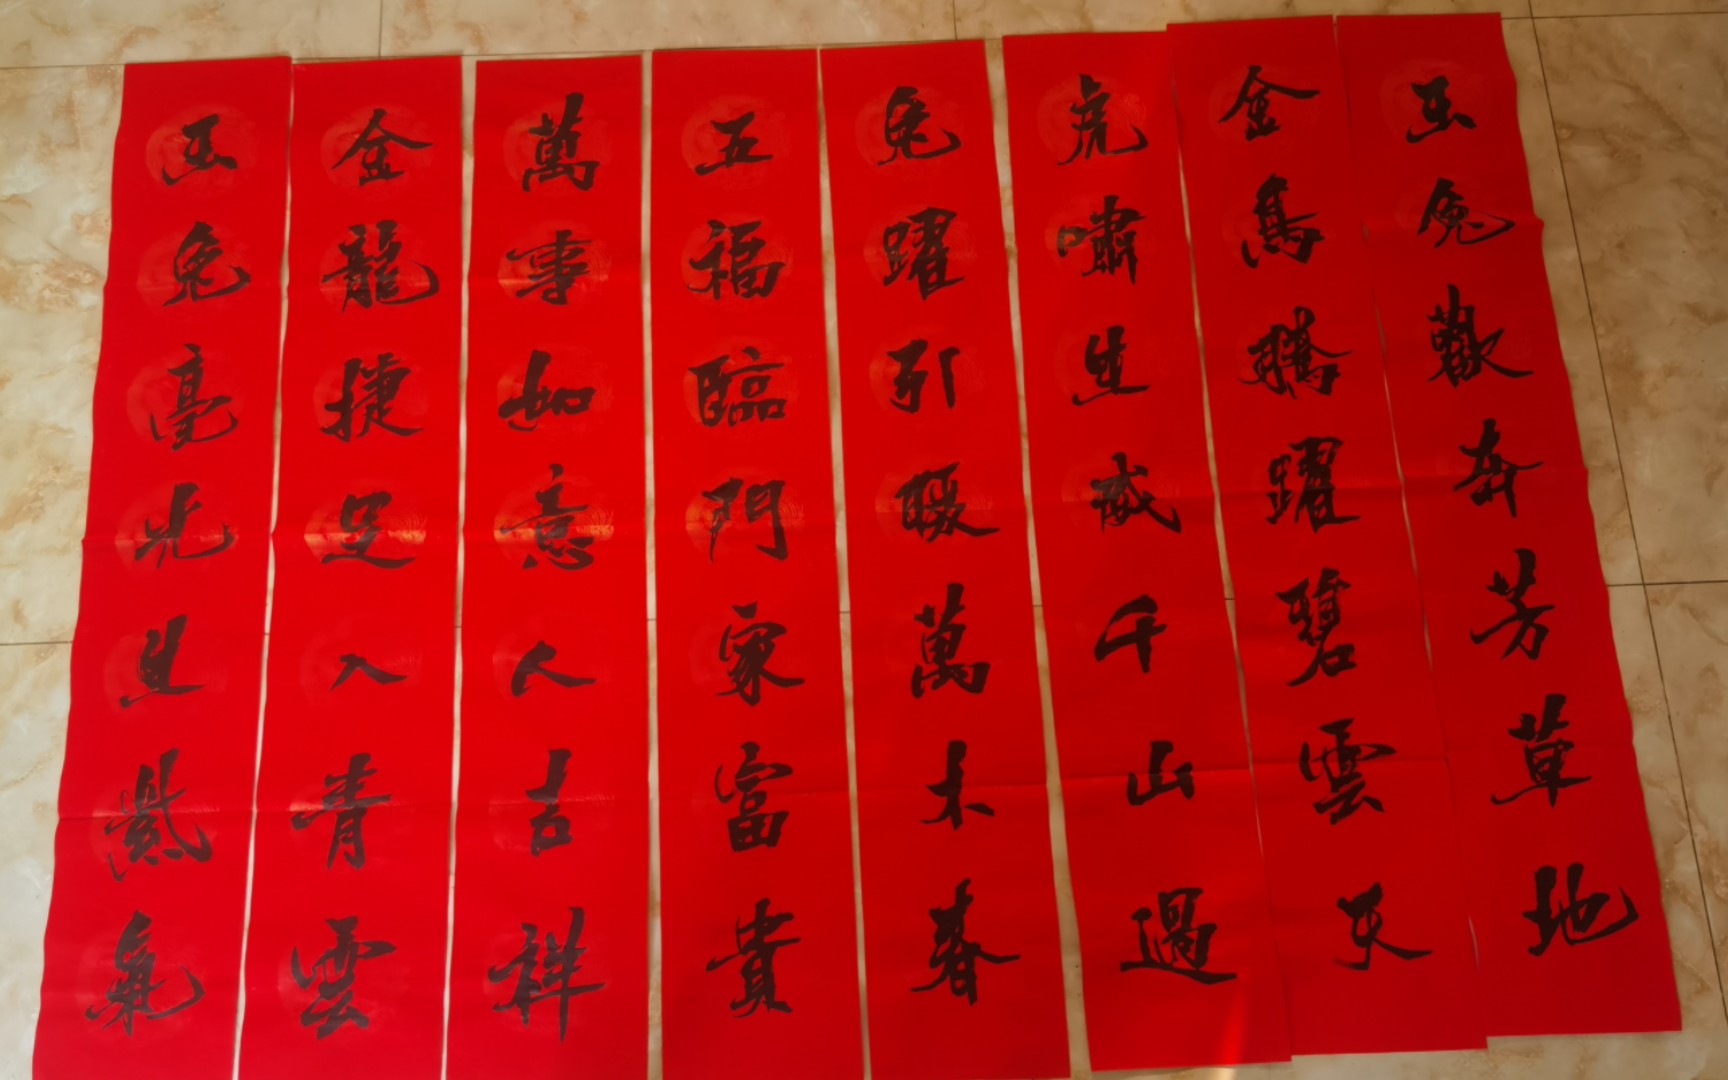 玉兔歡奔芳草地
金馬騰躍碧雲天
虎嘯生威千山過
兔躍引暖萬木春
五福臨門家富貴
萬事如意人吉祥
金龍捷足入青雲
玉兔毫光生紫氣